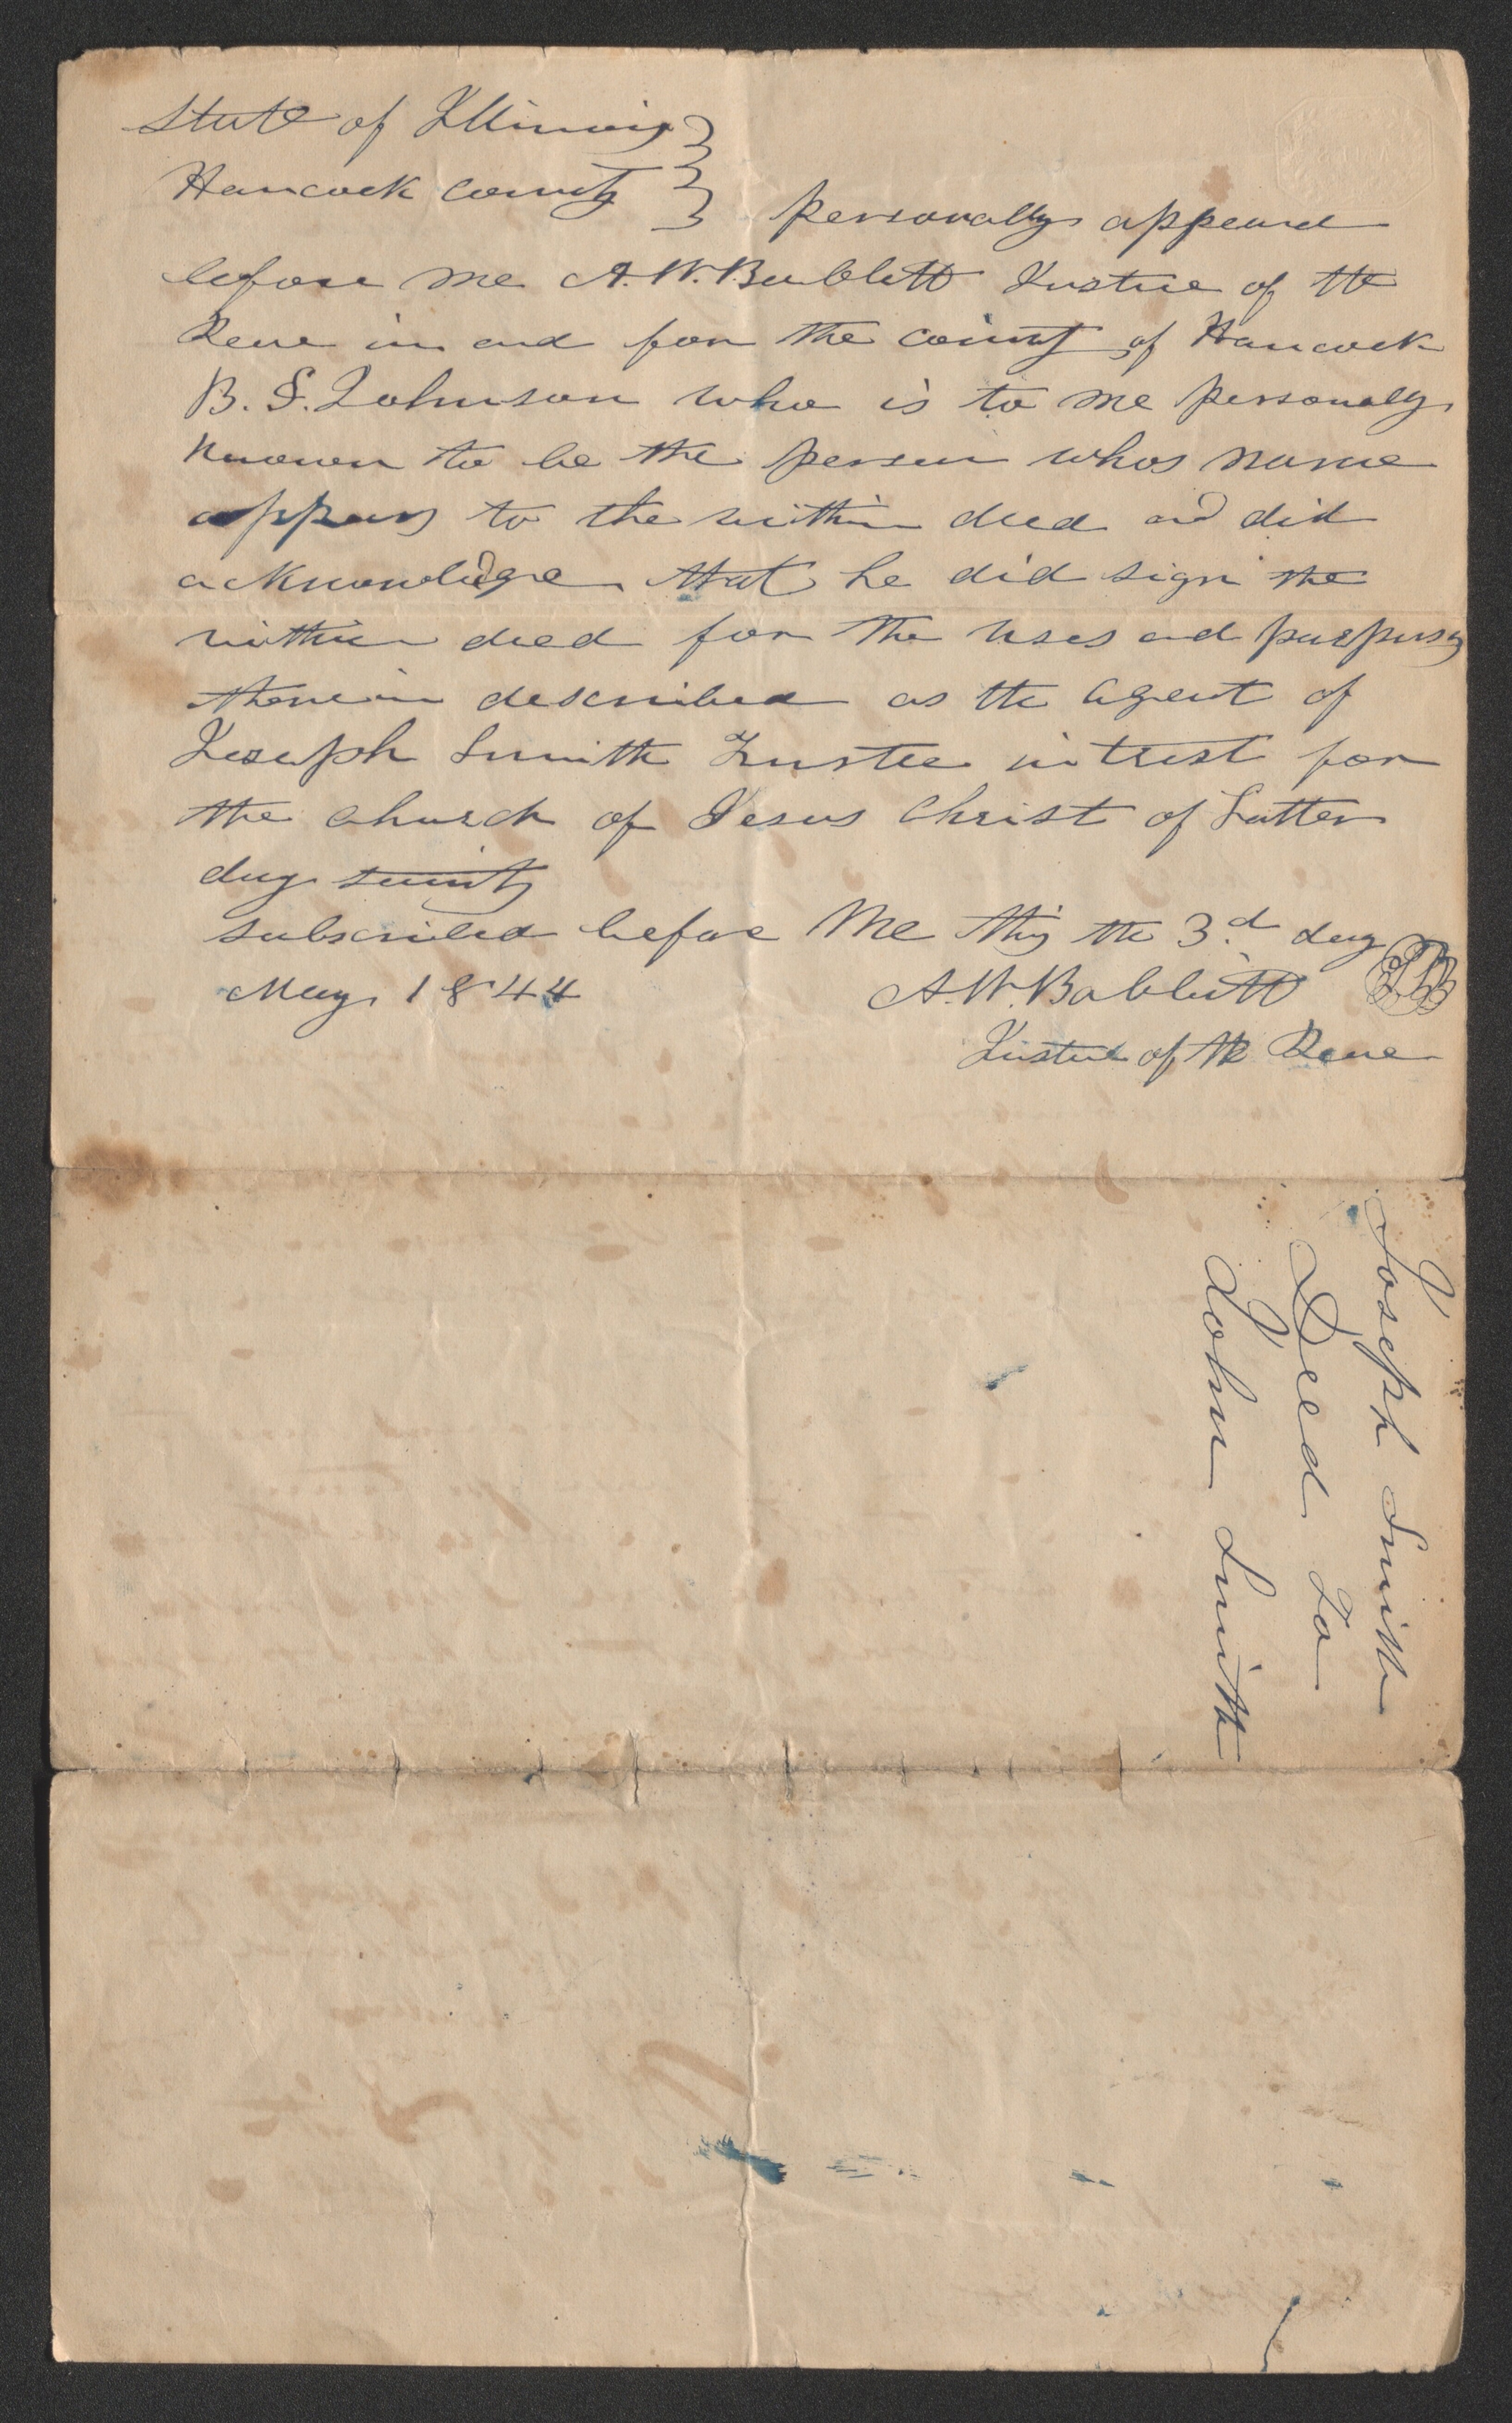 State of Illinois }
Hancock county } personally appeard
before me A. W. Babbitt Justice of the
Peace in and for the county of Hancock
B. F. Johnson who is to me personally
known to be the person whos name
appears to the within deed and did
acknowledge that he did sign the
within deed for the uses and purposes
therein described as the agent of
Joseph Smith Trustee in trust for
the church of Jesus Christ of Latter
day saints
subscribed before me this the 3d. day
May 1844 A. W. Babbitt
Justice of the Peace
Joseph Smith
Deed To
John Smith